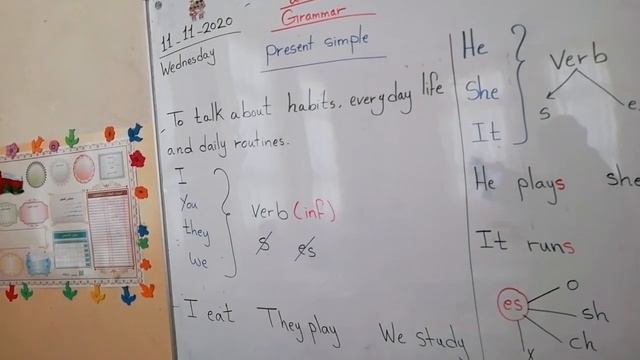 11-11-2020
Wednesday
Grammar
Present simple
- To talk about habits, everyday life
and daily routines.
I
You
they
we
verb (inf)
s es
- I eat They play We study
He
She
It
Verb
s
He plays she
It runs
es
o
sh
ch
x